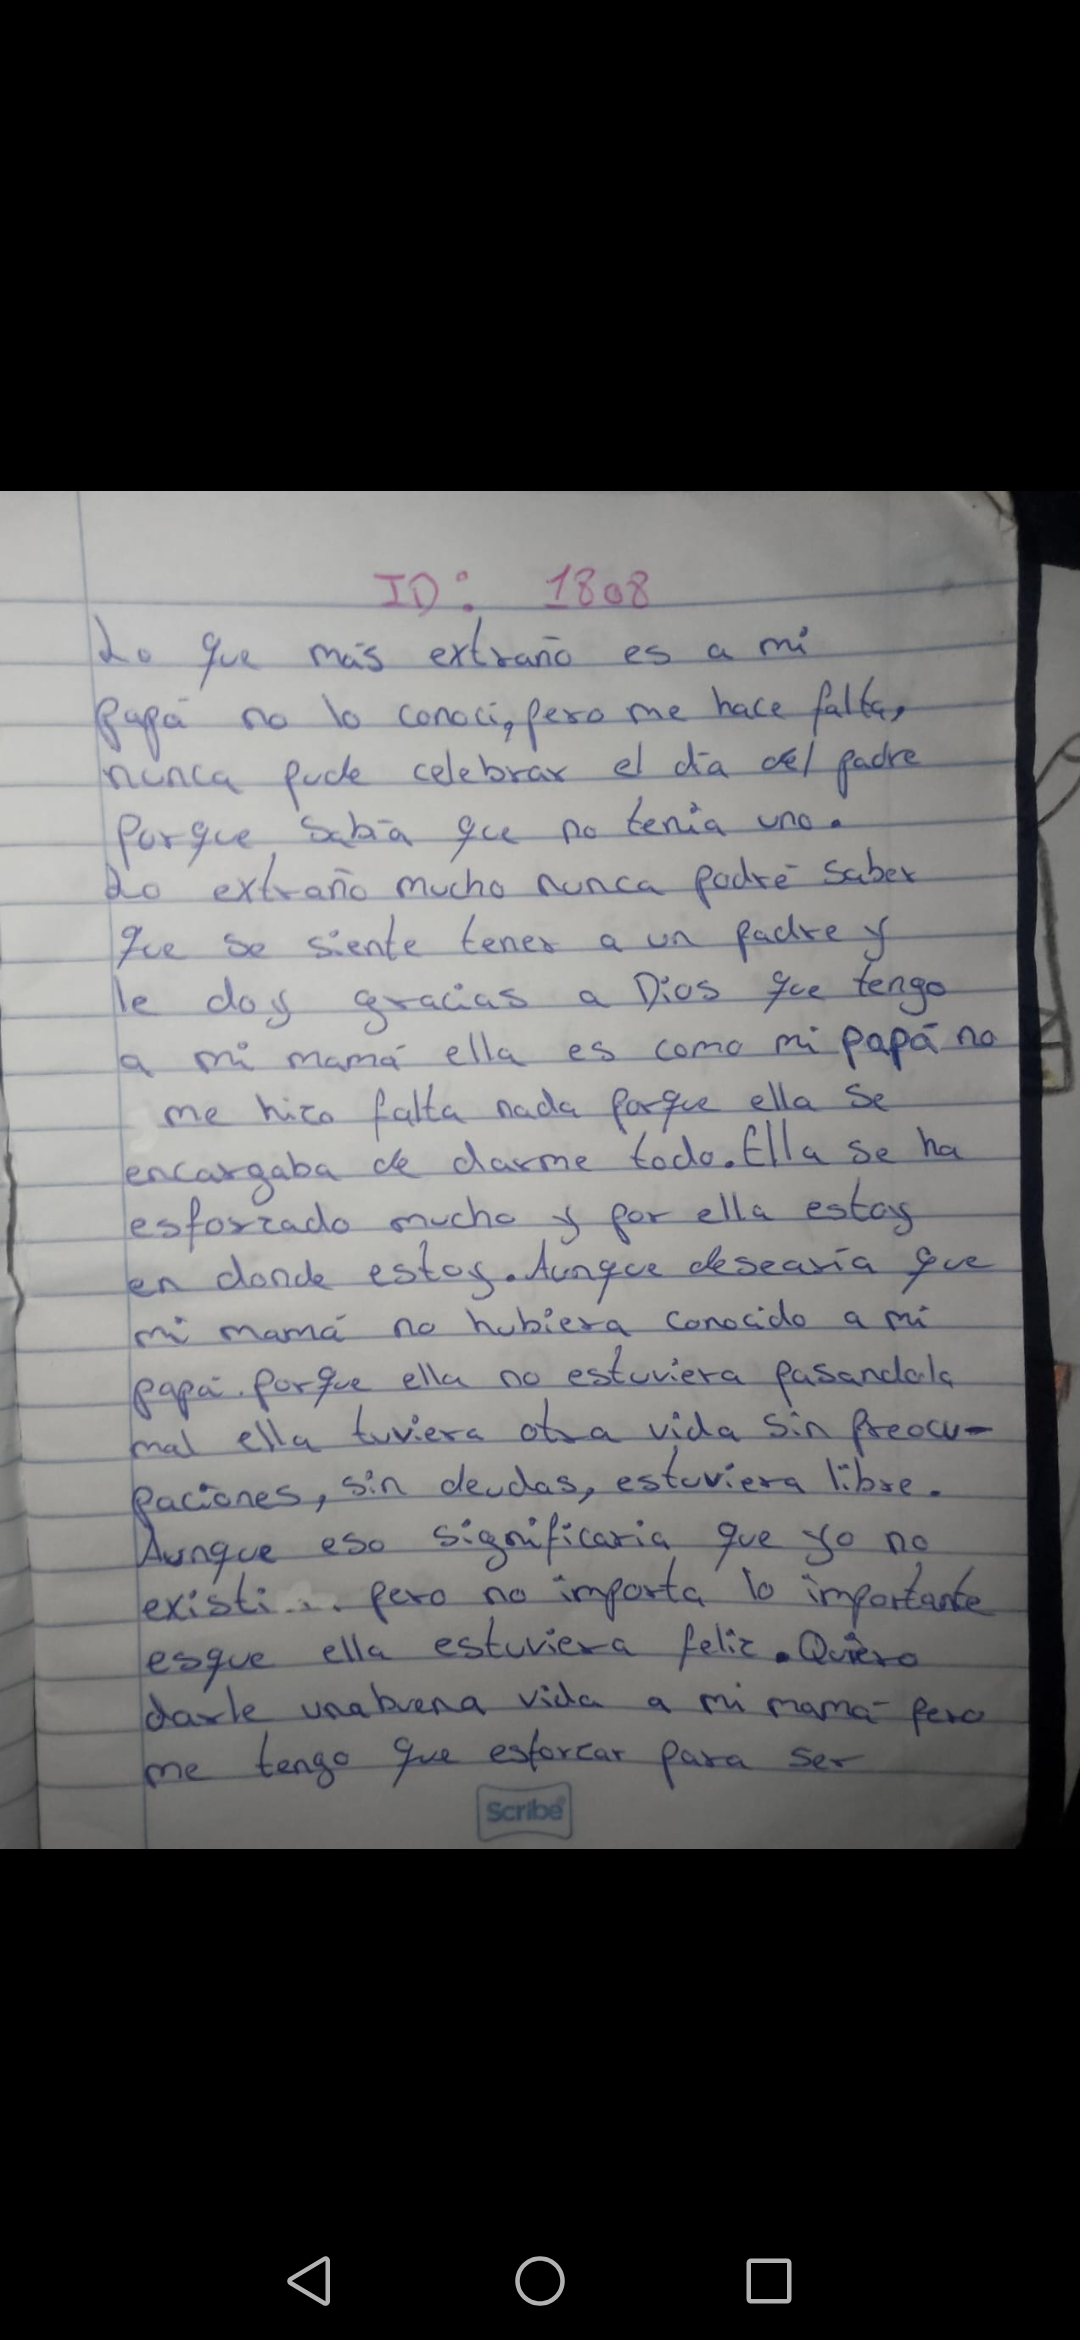 ID: 1808
Lo que más extraño es a mi
papá no lo conoci, pero me hace falta,
nunca pude celebrar el día del padre
porque sabía que no tenia uno.
Lo extraño mucho nunca podré saber
que se siente tener a un padre y
le doy gracias a Dios que tengo
a mi mamá ella es como mi papá no
me hizo falta nada porque ella se
encargaba de darme todo. Ella se ha
esforzado mucho y por ella estoy
en donde estoy. Aunque desearía que
mi mamá no hubiera conocido a mi
papá. porque ella no estuviera pasandola
mal ella tuviera otra vida sin preocu-
paciones, sin deudas, estuviera libre.
Aunque eso significaria que yo no
existi... pero no importa lo importante
esque ella estuviera feliz. Quiero
darle una buena vida a mi mamá pero
me tengo que esforzar para ser
Scribe